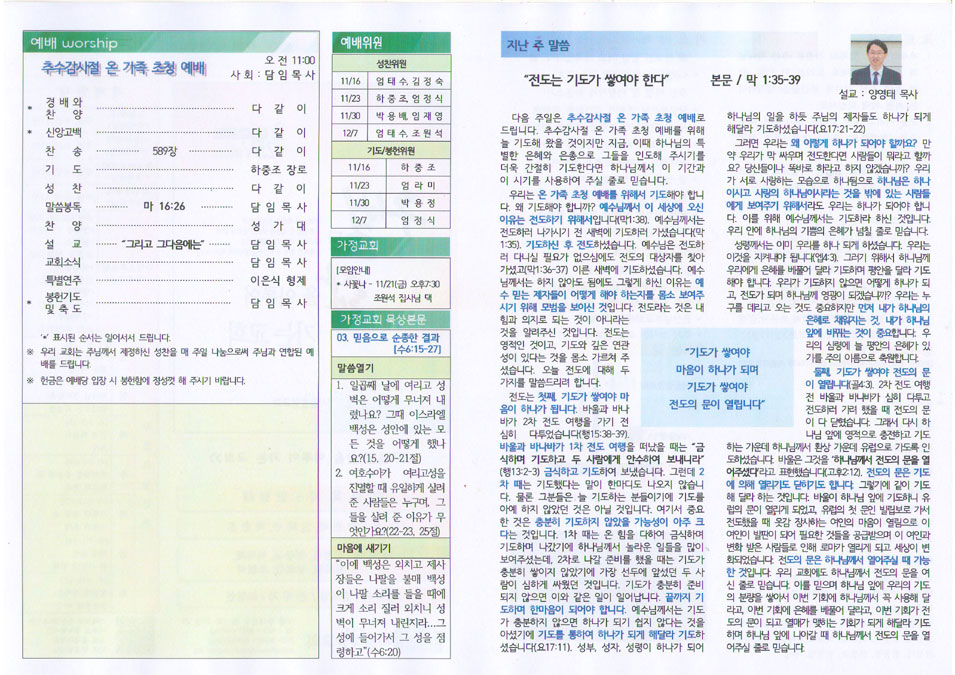 예배 worship
추수감사절 온 가족 초청 예배
오 전 11:00
사 회 : 담 임 목 사
* 경 배 와 찬 양 다 같 이
* 신앙고백 다 같 이
찬 송 589장 다 같 이
기 도 하중조 장로
성 찬 다 같 이
말씀봉독 마 16:26 담 임 목 사
찬 양 성 가 대
설 교 "그리고 그다음에는" 담 임 목 사
교회소식 담 임 목 사
특별연주 이은식 형제
* 봉헌기도 및 축 도 담 임 목 사
'*' 표시된 순서는 일어서서 드립니다.
※ 우리 교회는 주님께서 제정하신 성찬을 매 주일 나눔으로써 주님과 연합된 예
배를 드립니다.
※ 헌금은 예배당 입장 시 봉헌함에 정성껏 해 주시기 바랍니다.
예배위원
성찬위원
11/16 엄 태 수, 김 정 숙
11/23 하 중 조, 엄 정 식
11/30 박 용 배, 임 재 영
12/7 엄 태 수, 조 원 석
기도/봉헌위원
11/16 하 중 조
11/23 엄 라 미
11/30 박 용 정
12/7 엄 정 식
가정교회
[모임안내]
* 사랑나 - 11/21(금) 오후7:30
조원석 집사님 댁
가정교회 묵상본문
03. 믿음으로 순종한 결과
[수6:15-27]
말씀열기
1. 일곱째 날에 여리고 성
벽은 어떻게 무너져 내
렸나요? 그때 이스라엘
백성은 성안에 있는 모
든 것을 어떻게 했나
요?(15, 20-21절)
2. 여호수아가 여리고성을
진멸할 때 유일하게 살려
준 사람들은 누구며, 그
들을 살려 준 이유가 무
엇인가요?(22-23, 25절)
마음에 새기기
"이에 백성은 외치고 제사
장들은 나팔을 불매 백성
이 나팔 소리를 들을 때에
크게 소리 질러 외치니 성
벽이 무너져 내린지라...그
성에 들어가서 그 성을 점
령하고"(수6:20)
지난 주 말씀
"전도는 기도가 쌓여야 한다" 본문 / 막 1:35-39
설교 : 양영태 목사
다음 주일은 추수감사절 온 가족 초청 예배로
드립니다. 추수감사절 온 가족 초청 예배를 위해
늘 기도해 왔을 것이지만 지금, 이때 하나님의 특
별한 은혜와 은총으로 그들을 인도해 주시기를
더욱 간절히 기도한다면 하나님께서 이 기간과
이 시기를 사용하여 주실 줄로 믿습니다.
우리는 온 가족 초청 예배를 위해서 기도해야 합니
다. 왜 기도해야 합니까? 예수님께서 이 세상에 오신
이유는 전도하기 위해서입니다(막1:38). 예수님께서는
전도하러 나가시기 전 새벽에 기도하러 가셨습니다(막
1:35). 기도하신 후 전도하셨습니다. 예수님은 전도하
러 다니실 필요가 없으심에도 전도의 대상자를 찾아
가셨고(막1:36-37) 이른 새벽에 기도하셨습니다. 예수
님께서는 하지 않아도 됨에도 그렇게 하신 이유는 예
수 믿는 제자들이 어떻게 해야 하는지를 몸소 보여주
시기 위해 모범을 보이신 것입니다. 전도라는 것은 내
힘과 의지로 되는 것이 아니라는
것을 알려주신 것입니다. 전도는
영적인 것이고, 기도와 깊은 연관
성이 있다는 것을 몸소 가르쳐 주
셨습니다. 오늘 전도에 대해 두
가지를 말씀드리려 합니다.
전도는 첫째, 기도가 쌓여야 마
음이 하나가 됩니다. 바울과 바나
바가 2차 전도 여행을 가기 전
심히 다투었습니다(행15:38-39).
바울과 바나바가 1차 전도 여행을 떠났을 때는 "금
식하며 기도하고 두 사람에게 안수하여 보내니라"
(행13:2-3) 금식하고 기도하여 보냈습니다. 그런데 2
차 때는 기도했다는 말이 한마디도 나오지 않습니
다. 물론 그분들은 늘 기도하는 분들이기에 기도를
아예 하지 않았던 것은 아닐 것입니다. 여기서 중요
한 것은 충분히 기도하지 않았을 가능성이 아주 크
다는 것입니다. 1차 때는 온 힘을 다하여 금식하며
기도하며 나갔기에 하나님께서 놀라운 일들을 많이
보여주셨는데, 2차로 나갈 준비를 했을 때는 기도가
충분히 쌓이지 않았기에 가장 선두에 앞섰던 두 사
람이 심하게 싸웠던 것입니다. 기도가 충분히 준비
되지 않으면 이와 같은 일이 일어납니다. 끝까지 기
도하며 한마음이 되어야 합니다. 예수님께서는 기도
가 충분하지 않으면 하나가 되기 쉽지 않다는 것을
아셨기에 기도를 통하여 하나가 되게 해달라 기도하
셨습니다(요17:11). 성부, 성자, 성령이 하나가 되어
"기도가 쌓여야
마음이 하나가 되며
기도가 쌓여야
전도의 문이 열립니다"
하나님의 일을 하듯 주님의 제자들도 하나가 되게
해달라 기도하셨습니다(요17:21-22)
그러면 우리는 왜 이렇게 하나가 되어야 할까요? 만
약 우리가 막 싸우며 전도한다면 사람들이 뭐라고 할까
요? 당신들이나 똑바로 하라고 하지 않겠습니까? 우리
가 서로 사랑하는 모습으로 하나됨으로 하나님은 하나
이시고 사랑의 하나님이시라는 것을 밖에 있는 사람들
에게 보여주기 위해서라도 우리는 하나가 되어야 합니
다. 이를 위해 예수님께서는 기도하라 하신 것입니다.
우리 안에 하나님의 기쁨의 은혜가 넘칠 줄로 믿습니다.
성령께서는 이미 우리를 하나 되게 하셨습니다. 우리는
이것을 지켜야 됩니다(엡4:3). 그러기 위해서 하나님께
우리에게 은혜를 베풀어 달라 기도하며 평안을 달라 기도
해야 합니다. 우리가 기도하지 않으면 어떻게 하나가 되
고, 전도가 되며 하나님께 영광이 되겠습니까? 우리는 누
구를 데리고 오는 것도 중요하지만 먼저 내가 하나님의
은혜로 채워지는 것, 내가 하나님
앞에 바뀌는 것이 중요합니다. 우
리의 심령에 늘 평안과 은혜가 있
기를 주의 이름으로 축원합니다.
둘째, 기도가 쌓여야 전도의 문
이 열립니다(골4:3). 2차 전도 여행
전 바울과 바나바가 심히 다투고
전도하러 가려 했을 때 전도의 문
이 다 닫혔습니다. 그래서 다시 하
나님 앞에 영적으로 충전하고 기도
하는 가운데 하나님께서 환상 가운데 유럽으로 가도록 인
도하셨습니다. 바울은 그것을 '하나님께서 전도의 문을 열
어주셨다'라고 표현했습니다(고후2:12). 전도의 문은 기도
에 의해 열리기도 닫히기도 합니다. 그렇기에 같이 기도
해 달라 하는 것입니다. 바울이 하나님 앞에 기도하니 유
럽의 문이 열리게 되었고, 유럽의 첫 문인 빌립보로 가서
전도했을 때 옷감 장사하는 여인의 마음이 열림으로 이
여인이 발판이 되어 필요한 것들을 공급받으며 이 여인과
변화 받은 사람들로 인해 로마가 열리게 되고 세상이 변
화되었습니다. 전도의 문은 하나님께서 열어주실 때 가능
한 것입니다. 우리 교회에도 하나님께서 전도의 문을 여
신 줄로 믿습니다. 이를 믿으며 하나님 앞에 우리의 기도
의 분량을 쌓아서 이번 기회에 하나님께서 꼭 사용해 달
라고, 이번 기회에 은혜를 베풀어 달라고, 이번 기회가 전
도의 문이 되고 열매가 맺히는 기회가 되게 해달라 기도
하며 하나님 앞에 나아갈 때 하나님께서 전도의 문을 열
어주실 줄로 믿습니다.